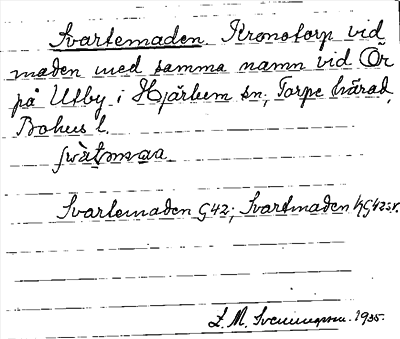 Svartemaden Kronotorp vid
maden med samma namn vid Ör
på Utby i Hjärtum sn, Torpe härad,
Bohus l.

Svartemaden G42; Svartmaden
S. M. Svenungsson. 1935.